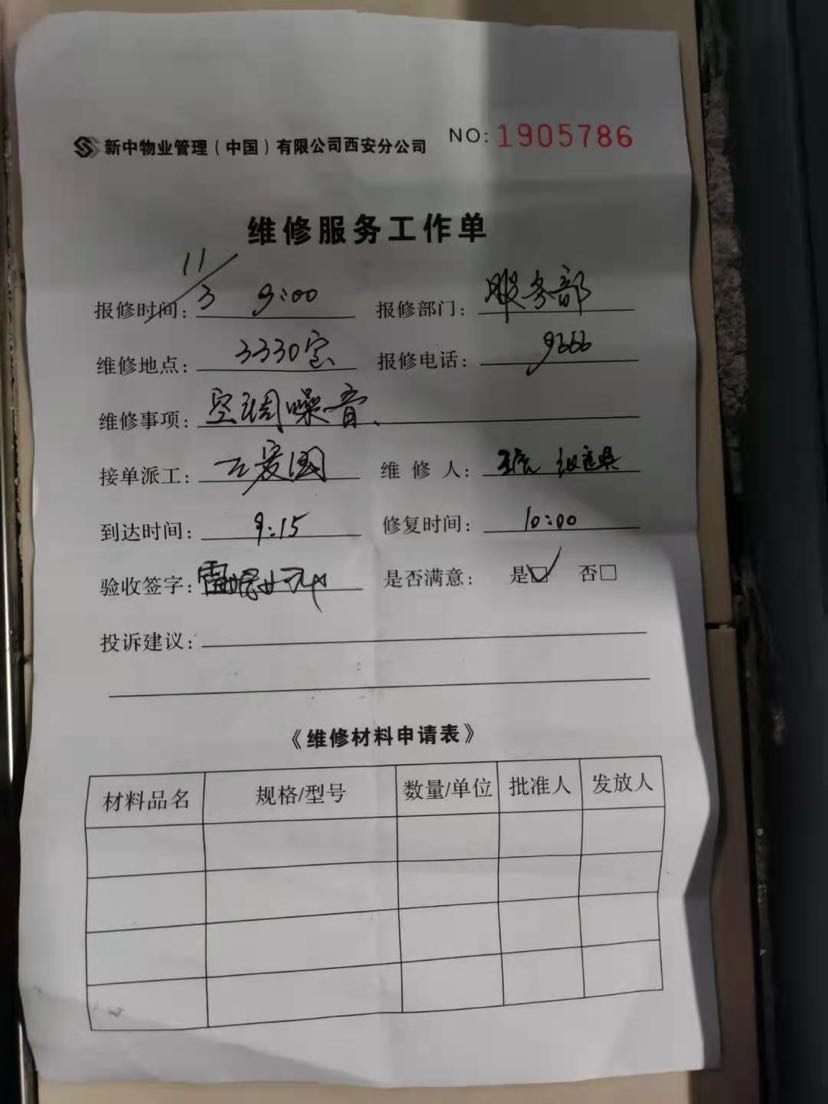 新中物业管理(中国)有限公司西安分公司 NO: 1905786
维修服务工作单
报修时间: 11/3 9:00 报修部门: 服务部
维修地点: 3330室 报修电话: 9666
维修事项: 空调噪音、
接单派工: 王爱国 维修人:
到达时间: 9:15 修复时间: 10:00
验收签字: 是否满意: 是☑ 否□
投诉建议:
《维修材料申请表》
材料品名 规格/型号 数量/单位 批准人 发放人